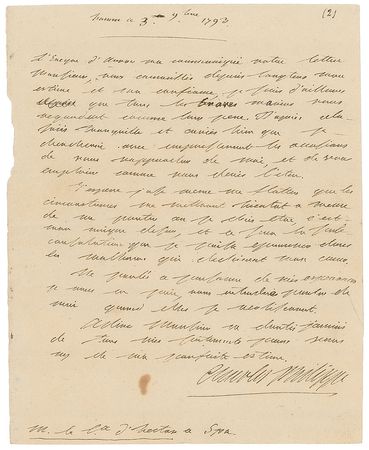 (2)
a 3 9bre 1792
d'Amour m'a communiqué votre lettre
Monsieur, vous connaissez depuis longtems mon
estime et ma confiance, je sais d'ailleurs
que tous les braves marins vous
regardent comme leur père. D'après cela
soyés tranquille et croiés bien que je
chercherai avec empressement les occasions
de vous rapprocher de moi, et de vous
employer comme vous devés l'être.
J'espère j'ose même me flatter que les
circonstances me mettront bientot a meme
de me porter où je dois être c'est
mon unique desir, et ce sera la seule
consolation que je puisse eprouver dans
les malheurs qui dechirent mon cœur.
Ne parlés a personne de mes
je vous en prie, vous
moi quand elles se realiseront.
Adieu Monsieur ne doutés jamais
de tous mes sentiments pour vous
ni de ma parfaite estime.
M. le Cte d'hector a Spa